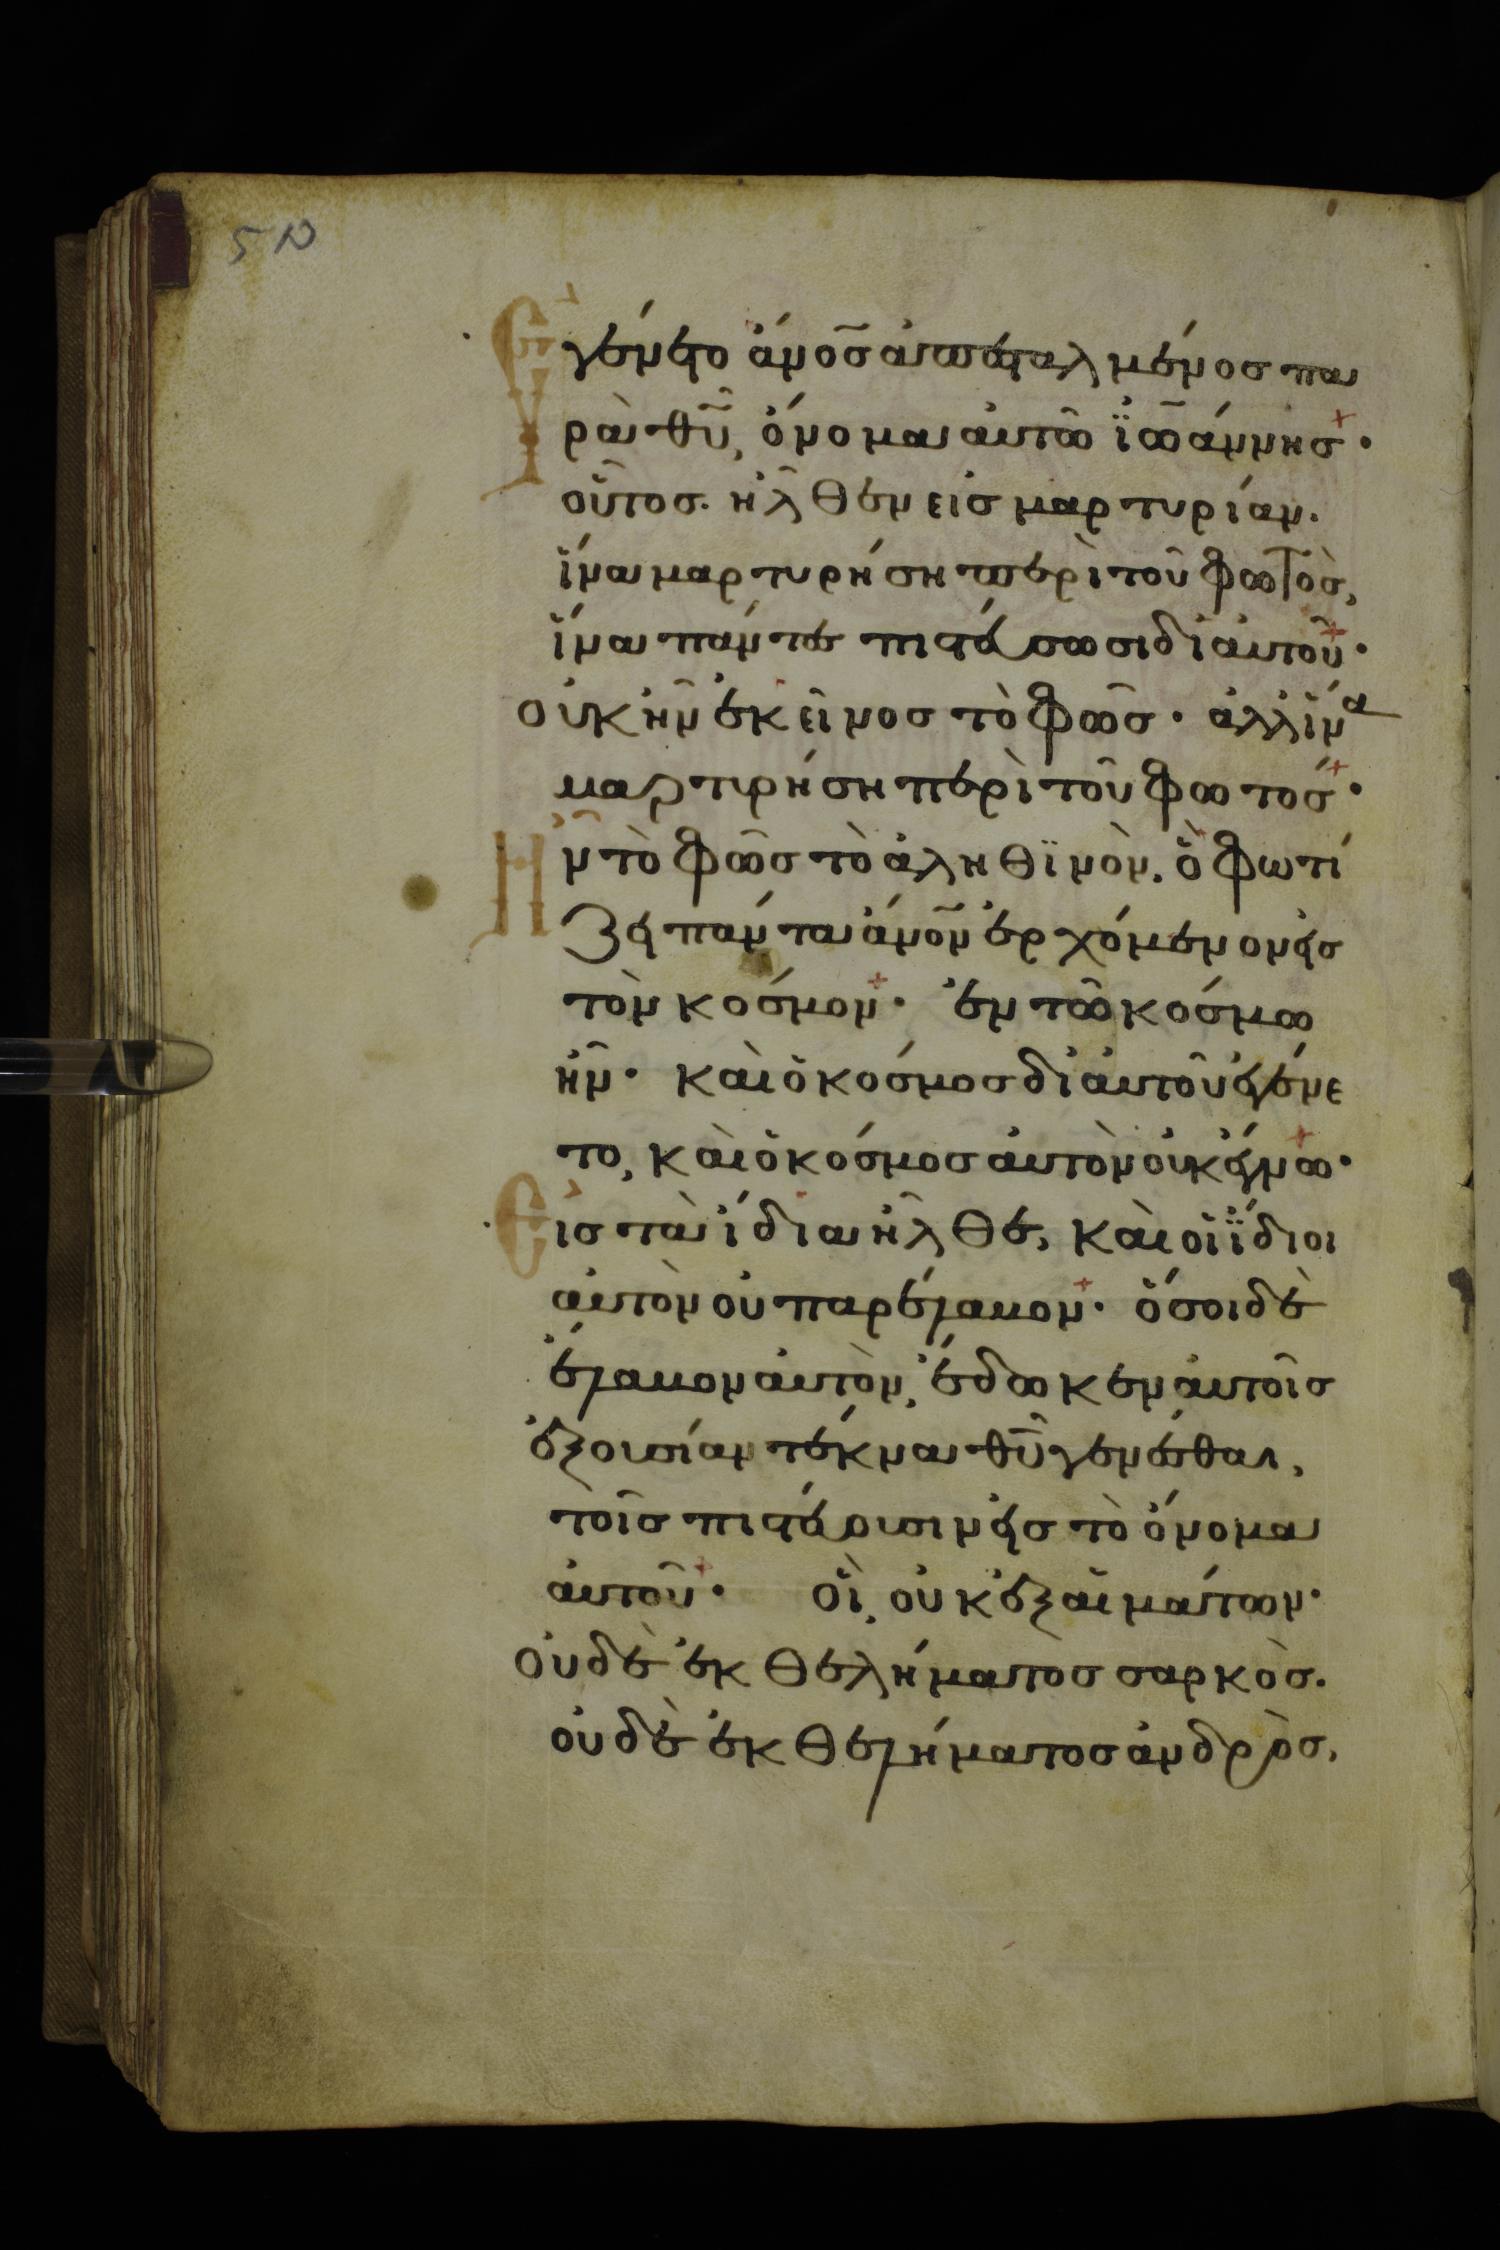 5 ν
Ἐγένετο ἄνο̅σ ἀπεσταλμένοσ πα
ρὰ θυ̅, ὄνομα αὐτῶ ϊωάννησ·
οὗτοσ. ἦλθεν εἰσ μαρτυρίαν.
ἵνα μαρτυρήση περὶ τοῦ φωτὸσ,
ἵνα πάντεσ πιστεύσωσι δι αὐτοῦ·
οὐκ ἦν ἐκεῖνοσ τὸ φῶσ· ἀλλ ἵνα
μαρτυρήση περὶ τοῦ φωτόσ·
Ἦν τὸ φῶσ τὸ ἀληθϊνὸν. ὃ φωτί
ζει πάντα ἄνο̅ν ἐρχόμενον εἰσ
τὸν κόσμον· ἐν τῶ κόσμω
ἦν· καὶ ὁ κόσμοσ δι αὐτοῦ ἐγένε
το, καὶ ὁ κόσμοσ αὐτὸν οὐκ ἔγνω·
Εἰσ τὰ ἴδια ἦλθε, καὶ οἱ ἴ̈διοι
αὐτὸν οὐ παρέλαβον· ὅσοι δὲ
ἔλαβον αὐτὸν, ἔδωκεν αὐτοῖσ
ἐξουσίαν τέκνα θυ̅ γενέσθαι,
τοῖσ πιστεύουσιν εἰσ τὸ ὄνομα
αὐτοῦ· Οἳ, οὐκ ἐξ αἱμάτων·
οὐδὲ ἐκ θελήματὸσ σαρκὸσ.
οὐδὲ ἐκ θελήματοσ ἀνδρὸσ,